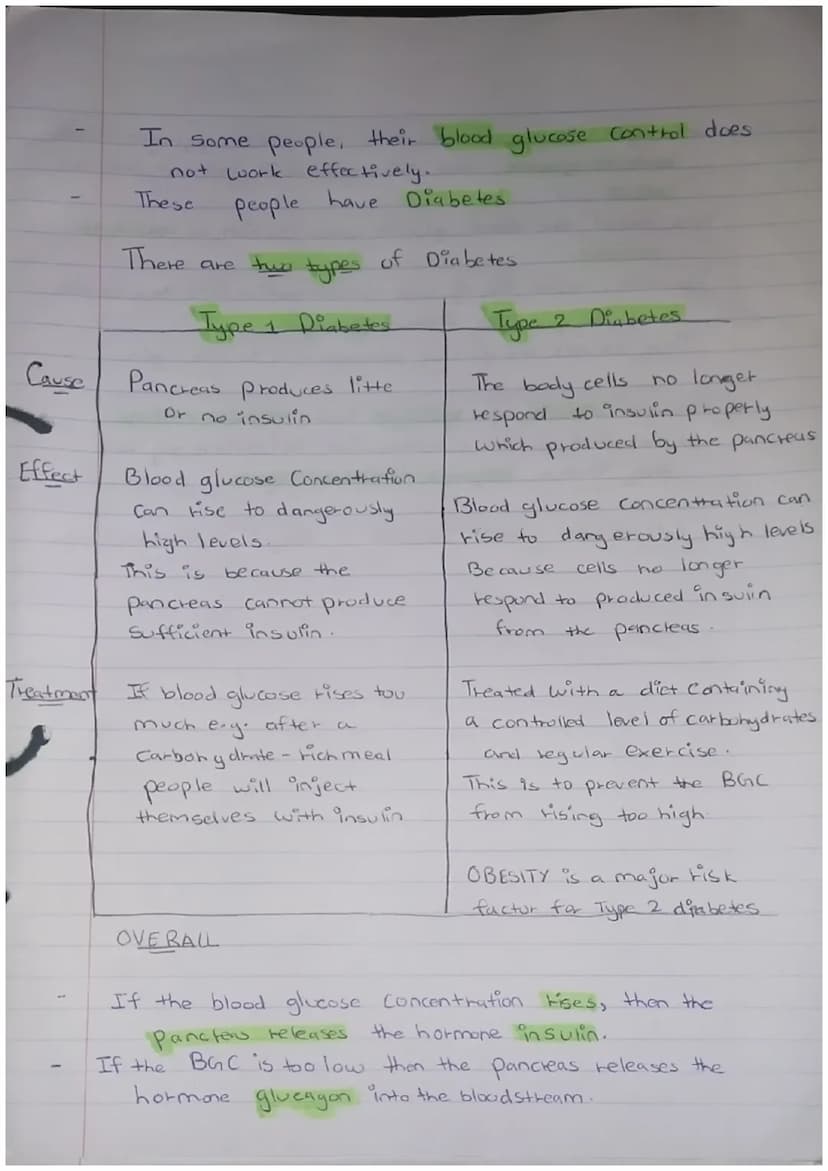 - In some people, their blood glucose control does
not work effectively.
- These people have Diabetes
There are two types of Diabetes
Type 1 Diabetes
Type 2 Diabetes
Cause
Pancreas produces litte
or no insulin
The body cells no longer
respond to insulin properly
which produced by the pancreas
Effect
Blood glucose concentration
can rise to dangerously
high levels.
This is because the
pancreas cannot produce
sufficient insulin.
Blood glucose concentration can
rise to dangerously high levels
Because cells no longer
respond to produced insulin
from the pancreas.
Treatment
If blood glucose rises too
much e.g. after a
carbohydrate - rich meal
people will inject
themselves with insulin
Treated with a diet containing
a controlled level of carbohydrates
and regular exercise.
This is to prevent the BGC
from rising too high
OBESITY is a major risk
factor for Type 2 diabetes
OVERALL
- If the blood glucose concentration rises, then the
pancreas releases the hormone insulin.
- If the BGC is too low then the pancreas releases the
hormone glucagon into the bloodstream.